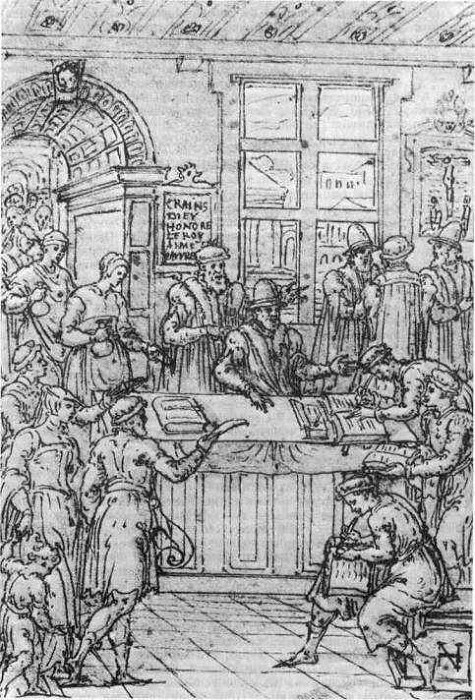 CRAINS
DIEV
HONORE
LE ROY
AIME
PAVVRE